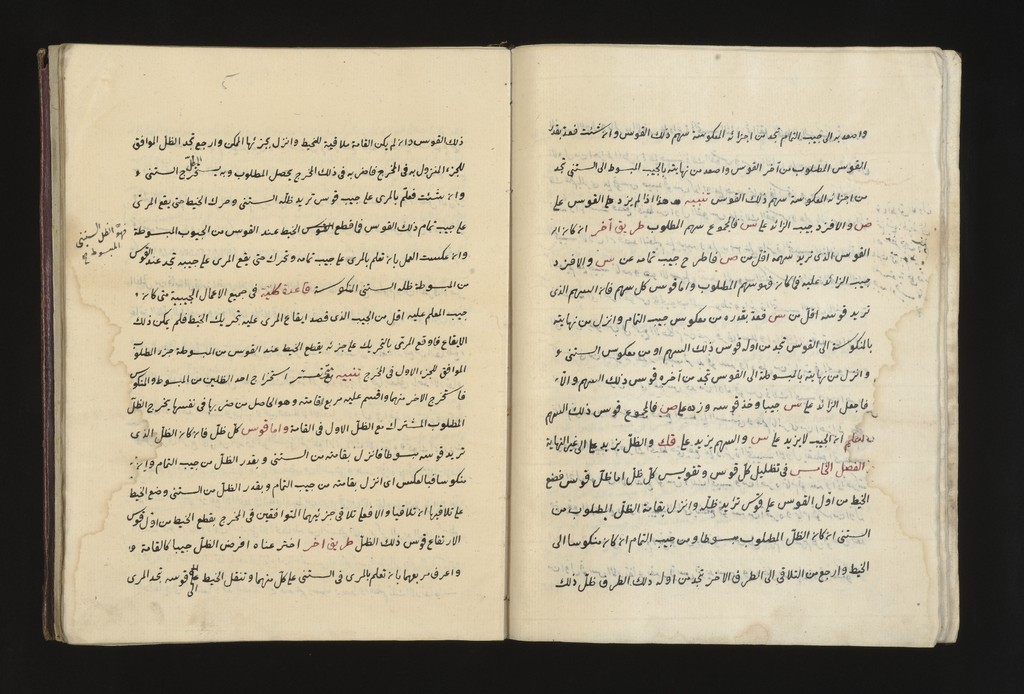 واصعد به الى جيب التمام تجد من اجزائه المعكوسة سهم ذلك القوس وان شئت فعد بقدر
القوس المطلوب من آخر القوس واصعد من نهايته بالجيب المبسوط الى الستينى تجد
من اجزائه المعكوسة سهم ذلك القوس تنبيه هذا اذا لم يزد هذا القوس على
ص والا فزد جيب الزائد على س فالمجموع سهم المطلوب طريق آخر ان كان
القوس الذى تريد سهمه اقل من ص فاطرح جيب تمامه من س والا فزد
جيب الزائد عليه فما كان فهو سهم المطلوب واما قوس كل سهم فان السهم الذى
تريد قوسه اقل من س فعد بقدره من معكوس جيب التمام وانزل من نهايته
بالمنكوسة الى القوس تجد من اوله قوس ذلك السهم او من معكوس الستينى و
وانزل من نهايته بالمبسوطة الى القوس تجد من آخره قوس ذلك السهم والا
فاجعل الزائد على س جيبا وخذ قوسه وزده على ص فالمجموع قوس ذلك السهم
ان الجيب لا يزيد على س والسهم يزيد على قك والظل يزيد الى غير النهاية
الفصل الخامس فى تظليل كل قوس وتقويس كل ظل اما ظل قوس فضع
الخيط من اول القوس على قوس تريد ظله وانزل بقامة الظل المطلوب من
الستينى ان كان الظل المطلوب مبسوطا ومن جيب التمام ان كان منكوسا الى
الخيط وارجع من التلاقى الى الطرف الآخر تجد من اوله ذلك الطرف ظل ذلك
ذلك القوس وان لم يكن القامة ملاقية للخيط وانزل بجزئها الممكن وارجع تجد الظل الموافق
للجزء المنزول به فى المخرج فاضربه فى ذلك المخرج يحصل المطلوب وبه يستخرج الستينى
وان شئت فعلم بالمرى على جيب قوس تريد ظله الستينى وحرك الخيط حتى يقع المرى
على جيب تمام ذلك القوس فما قطع الخيط عند القوس من الجيوب المبسوطة
فهو الظل الستينى
المبسوط
وان عكست العمل بان تعلم بالمرى على جيب تمامه وتحرك حتى يقع المرى على جيبه تجد عند القوس
من المبسوطة ظله الستينى المنكوسة قاعدة كلية فى جميع الاعمال الجيبية متى كان
جيب المعلم عليه اقل من الجيب الذى قصد ايقاع المرى عليه تحريك الخيط فلم يمكن ذلك
الايقاع فاوقع المرى بالتحريك على جزئه يقطع الخيط عند القوس من المبسوطة جزء المطلوب
الموافق للجزء الاول فى المخرج تنبيه استخراج احد الظلين من المبسوط والمنكوس
فاستخرج الآخر منهما واقسم عليه مربع القامة وهو الحاصل من ضربها فى نفسها يخرج الظل
المطلوب المشترك مع الظل الاول فى القامة واما قوس كل ظل فان كان الظل الذى
تريد قوسه مبسوطا فانزل بقامته من الستينى وبقدر الظل من جيب التمام وان
منكوسا فبالعكس اى انزل بقامته من جيب التمام وبقدر الظل من الستينى وضع الخيط
على تلاقيهما ان تلاقيا والا فعلى تلاقى جزئيهما المتوافقين فى المخرج يقطع الخيط من اول قوس
الارتفاع قوس ذلك الظل طريق آخر اخترعناه افرض الظل جيبا كالقامة
واعرف مربعهما بان تعلم بالمرى فى الستينى على كل منهما وتنقل الخيط الى قوسه تجد المرى